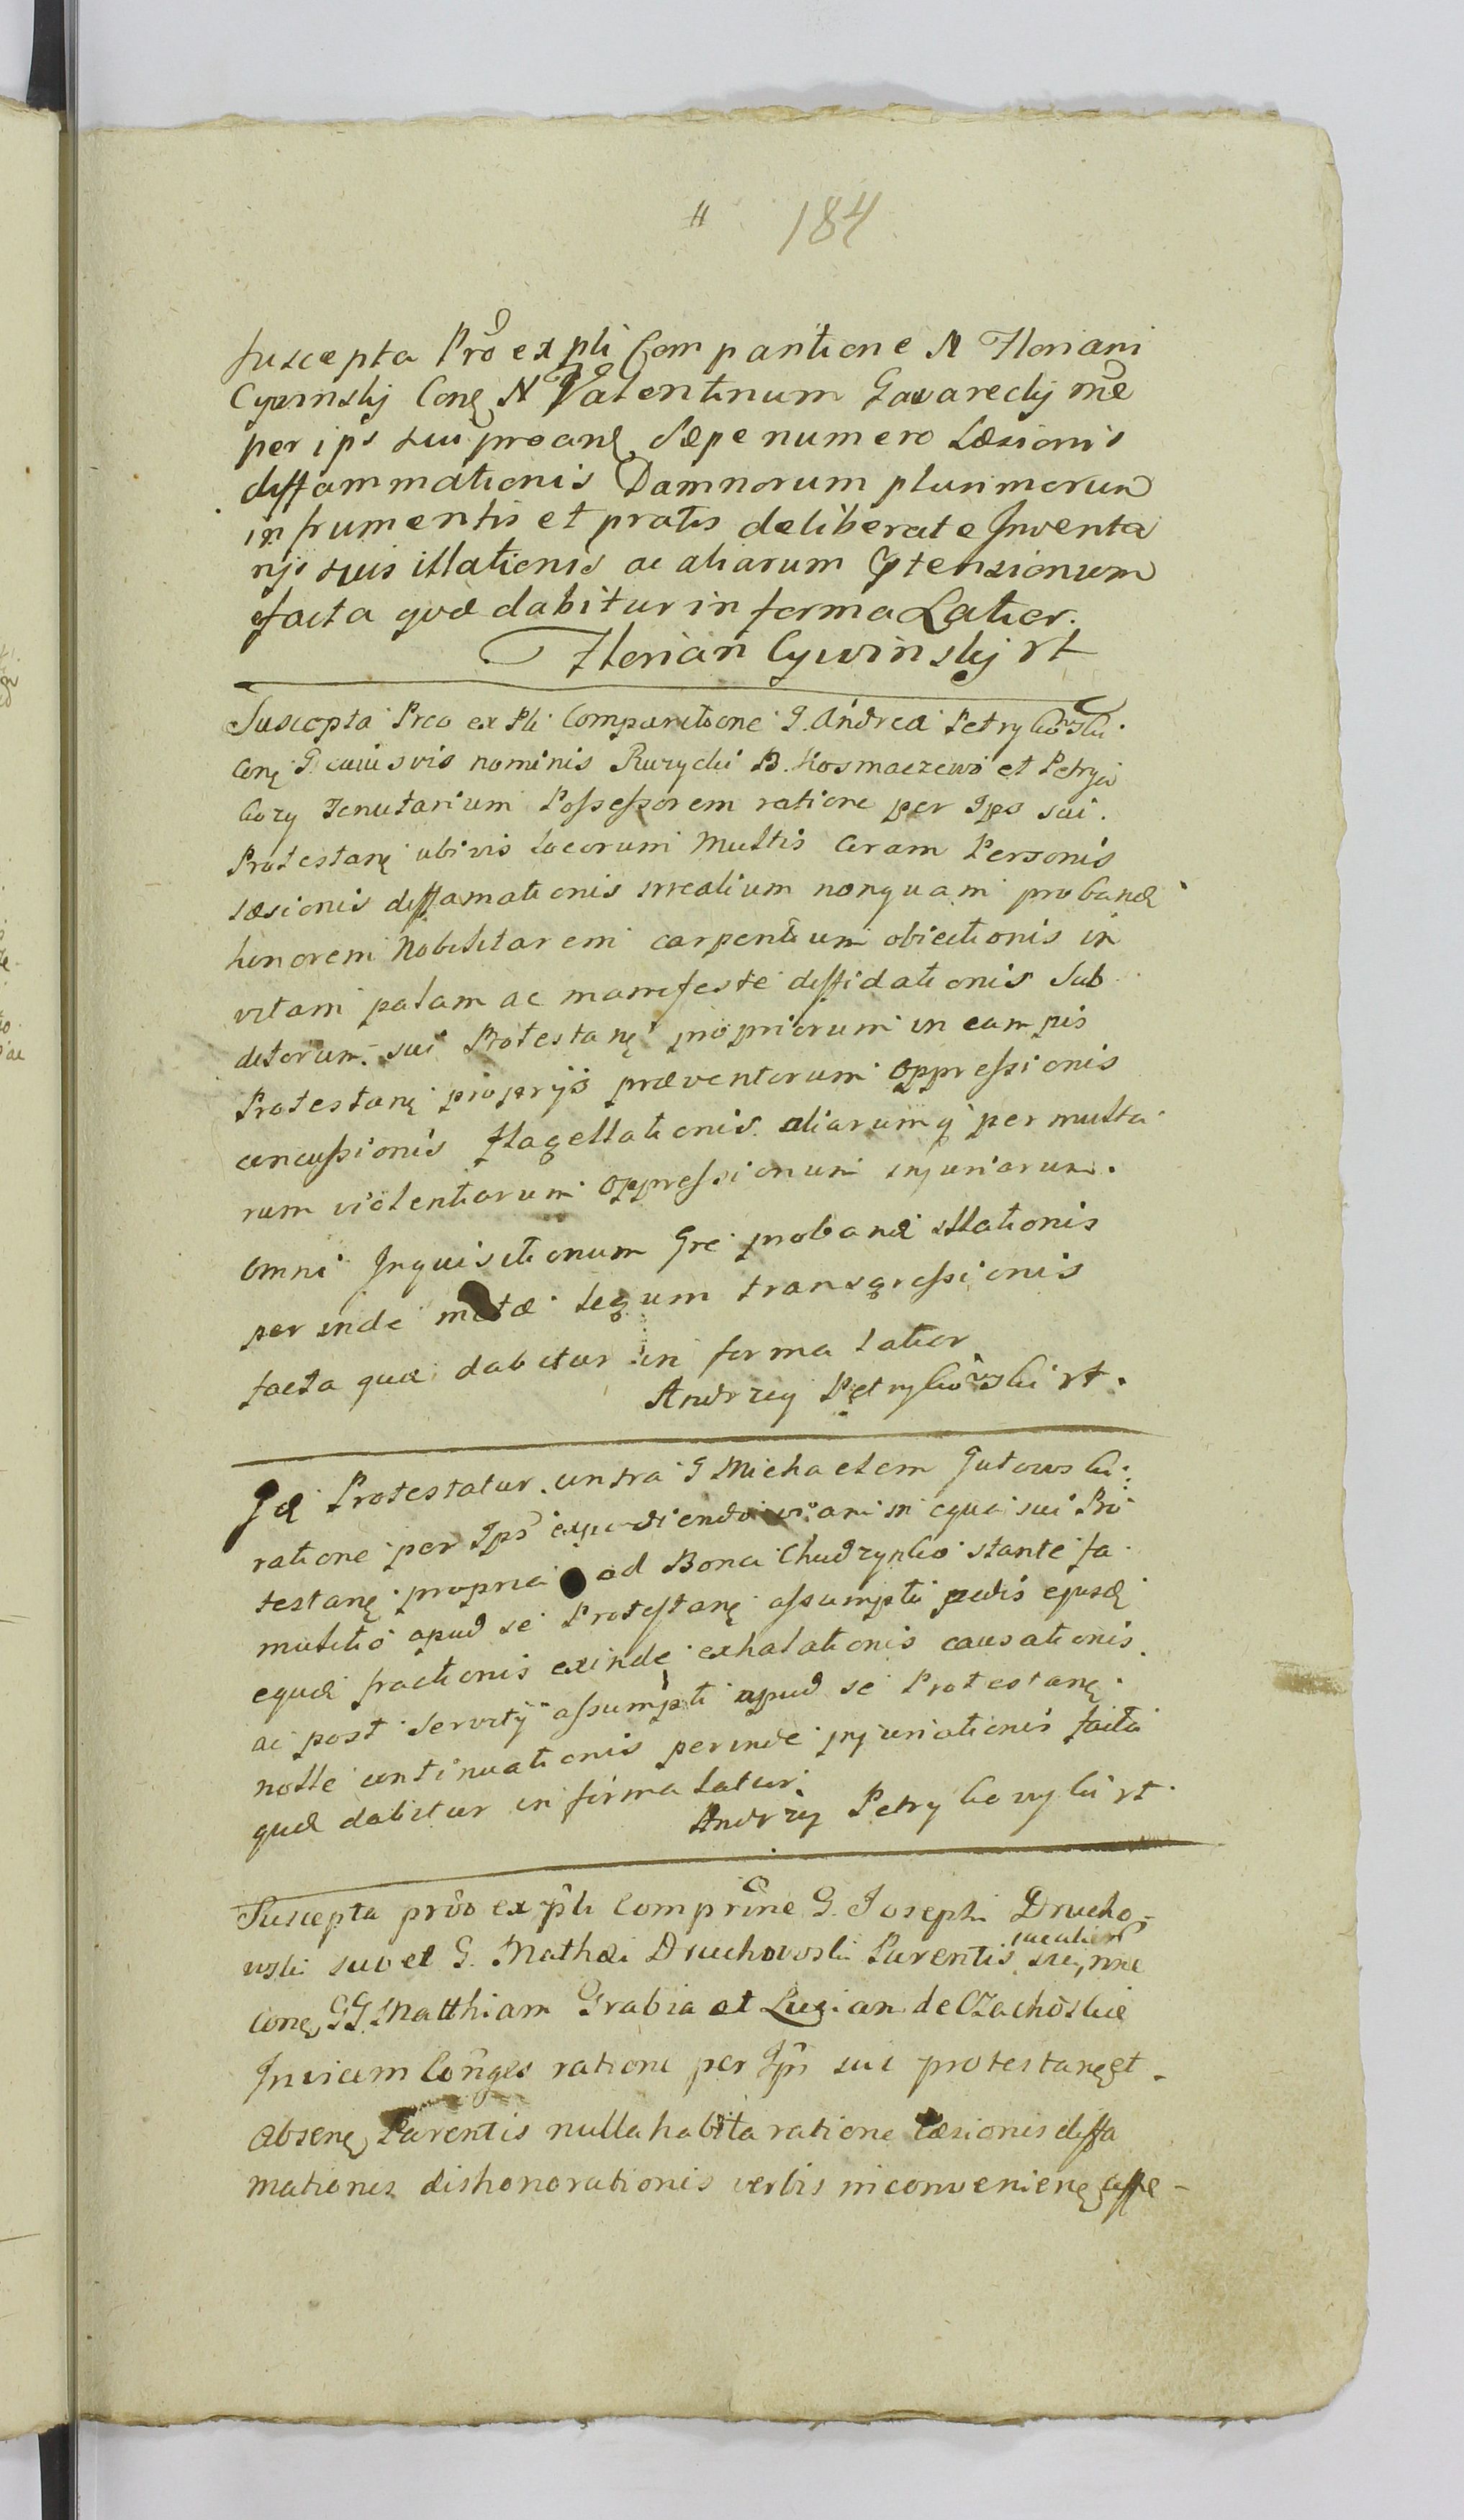 184
Suscepta Pro ex pti Comparitione N Floriani
Cywinskj Conę N Valentinum Gavareckj rne
per ips sui proanę Sæpe numero Læsionis
diffammationis Damnorum plurimorum
in frumentis et pratis deliberate Inventa
rijs suis illationis ac aliarum ptensionum
facta qvæ dabitur in forma Latior.
Florian Cywinskj rt
Suscepta Pro ex Pti Comparitione G. Andreæ Petrykowski
Conę G. cuiusvis nominis Rurycki B. Kosmaczewo et Petry
kozy Tenutarium Possessorem ratione per Ips sui.
Protestanę ubivis locorum Multis Coram Personis
Læsionis diffamationis irrealium nonquam proband
honorem Nobilitarem carpentium obiectionis in
vitam palam ac manifeste diffidationis Sub
ditorum sui Protestanę propriorum in campis
Protestanę proprijs præventorum oppressionis
concussionis flagellationis aliarumq permulta
rum violentiarum oppressionum injuriarum.
omni Inquisitionum Gre proband illationis
per inde metæ legum transgressionis
facta quæ dabitur in forma latior
Andrzey Petrykowski rt.
Id Protestatur contra G Michaelem Gutowski
ratione per Ips in equa sui Pro
testanę propria ad Bona Chudzynko stante fa
mulitio apud se Protestanę assumpti pedis ejusd
equæ fractionis exinde exhalationis causationis
ac post servitij assumpti apud se Protestanę
nolle continuationis perinde injuriationis facta
quæ dabitur in forma latior.
Andrzy Petrykowyki rt
Suscepta pro ex pti Comprine G. Josephi Drucho-
wski suo et G. Mathæi Druchowski Parentis sui, rne
Conę GG. Matthiam Grabia et Luzian de Czachoskie
Invicem Conges ratione per Ips sui protestanę et
absenę Parentis nulla habita ratione Læsionis diffa
mationis dishonorationis verbis inconvenienę affe-